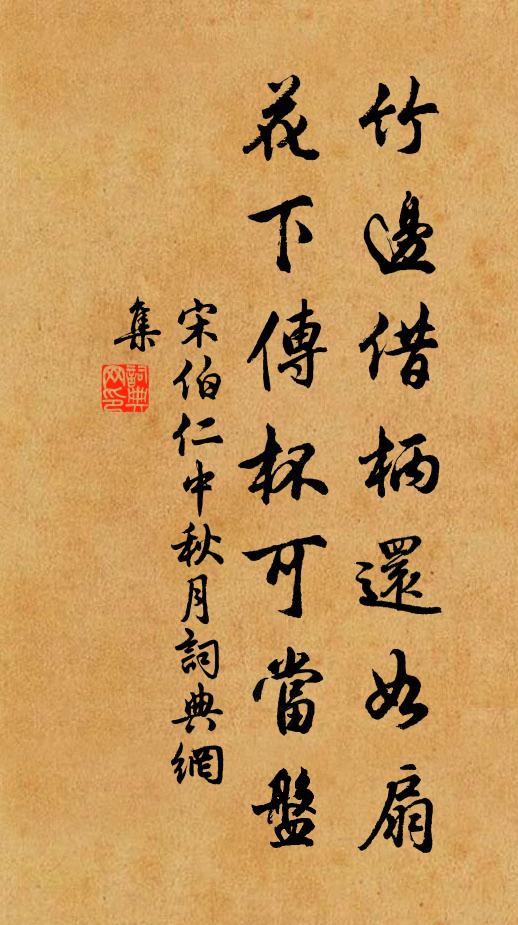 竹邊借柄還如扇
花下傳杯可當盤
宋伯仁中秋月詞典網
集
詞典
网印